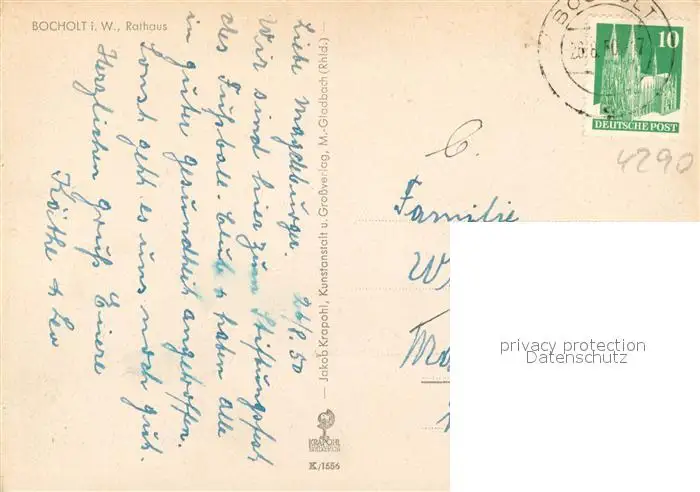 BOCHOLT i. W., Rathaus
Liebe Magdeburger. 26/8. 50
Wir sind hier zum Stiftungsfest
des Fußball-Club & haben alle
in guter Gesundheit angetroffen.
Sonst geht es uns noch gut.
Herzlichen Gruß Eure
Käthe & Leo
— Jakob Krapohl, Kunstanstalt u. Großverlag, M.-Gladbach (Rhld.) —
KRAPOHL
K/1556
BOCHOLT
10
DEUTSCHE POST
4290
Familie
privacy protection
Datenschutz